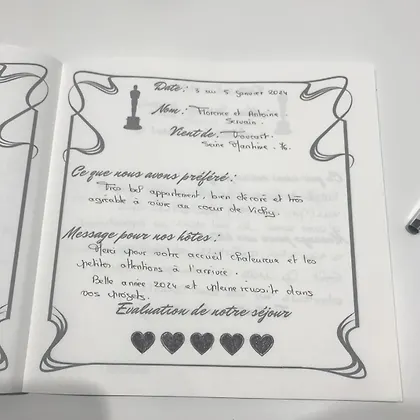 Date: 3 au 5 janvier 2024
Nom: Florence et Antoine
Vient de:
Seine Maritime. 76.
Ce que nous avons préféré:
Très bel appartement, bien décoré et très
agréable à vivre au coeur de Vichy.
Message pour nos hôtes:
Merci pour votre accueil chaleureux et les
petites attentions à l'arrivée.
Belle année 2024 et pleine réussite dans
vos projets.
Evaluation de notre séjour